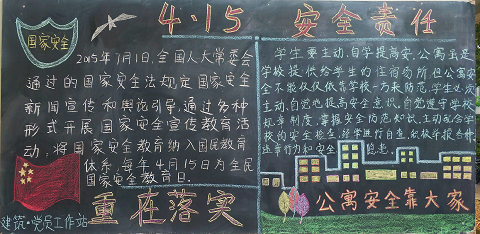 4·15 安全责任
国家安全
2015年7月1日,全国人大常委会
通过的国家安全法规定国家安全
新闻宣传和舆论引导,通过多种
形式开展国家安全宣传教育活
动,将国家安全教育纳入国民教育
体系,每年4月15日为全民
国家安全教育日。
重在落实
建筑·党员工作站
学生要主动、自学提高安,公寓虽是
学校提供给学生的住宿场所但公寓安
全不能仅仅依靠学校一方来防范,学生必须
主动、自觉地提高安全意识,自觉遵守学校
规章制度,掌握安全防范知识,主动配合学
校的安全检查,经常进行自查,积极
违章行为和安全隐患。
公寓安全靠大家